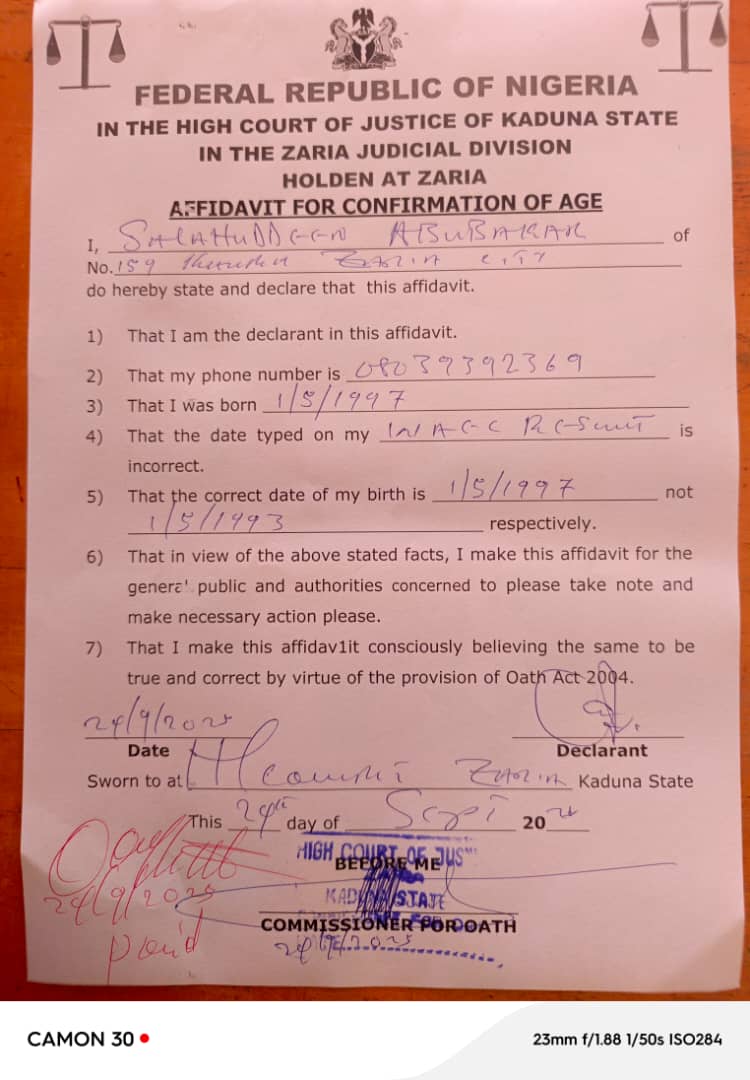 FEDERAL REPUBLIC OF NIGERIA
IN THE HIGH COURT OF JUSTICE OF KADUNA STATE
IN THE ZARIA JUDICIAL DIVISION
HOLDEN AT ZARIA
AFFIDAVIT FOR CONFIRMATION OF AGE
I, SALAHUDDEEN ABUBAKAR of
No. 159 ZARIA CITY
do hereby state and declare that this affidavit.
1) That I am the declarant in this affidavit.
2) That my phone number is 08039392369
3) That I was born 1/5/1997
4) That the date typed on my WAEC RESULT is
incorrect.
5) That the correct date of my birth is 1/5/1997 not
1/5/1993 respectively.
6) That in view of the above stated facts, I make this affidavit for the
general public and authorities concerned to please take note and
make necessary action please.
7) That I make this affidav1it consciously believing the same to be
true and correct by virtue of the provision of Oath Act 2004.
24/9/2025
Date Declarant
Sworn to at H Court ZARIA Kaduna State
This 24th day of Sept 20
HIGH COURT OF JUS
BEFORE ME
24/9/2025
KADUNA STATE
paid
COMMISSIONER FOR OATH
24/9/2025
CAMON 30 23mm f/1.88 1/50s ISO284